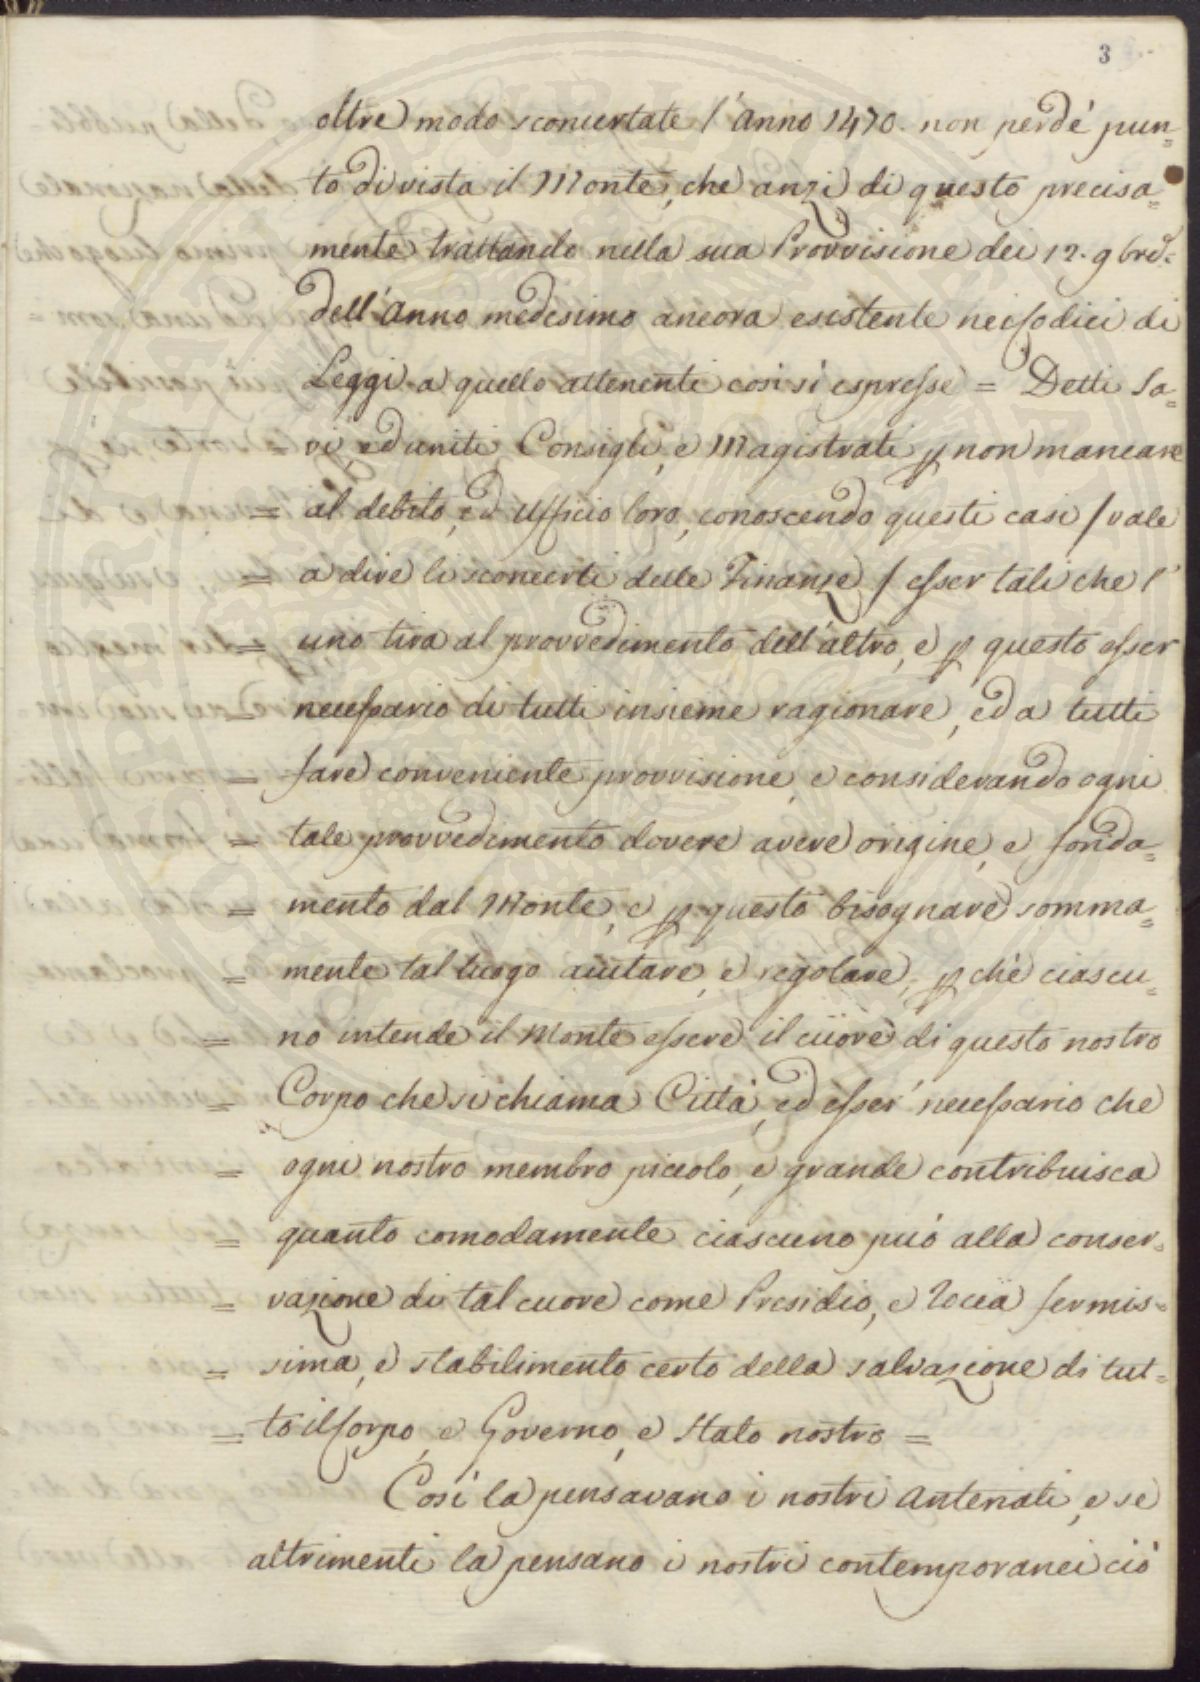 3
oltre modo sconcertate l'Anno 1470. non perdé pun=
to di vista il Monte, che anzi di questo precisa=
mente trattando nella sua Provvisione dei 12. 9bre.
dell'Anno medesimo ancora esistente nei Codici di
Leggi a quello attenenti così si espresse = Detti Sa=
vi, ed uniti Consigli, e Magistrati p non mancare
= al debito, ed Ufficio loro, conoscendo questi casi / vale
= a dire li sconcerti delle Finanze / esser tali che l'
= uno tira al provvedimento dell'altro, e p questo esser
= necessario di tutti insieme ragionare, ed a tutti
= fare conveniente provvisione, e considerando ogni
= tale provvedimento dovere avere origine, e fonda=
= mento dal Monte, e p questo bisognare somma=
= mente tal luogo aiutare, e regolare, p chè ciascu=
= no intende il Monte essere il cuore di questo nostro
= Corpo che si chiama Città, ed esser necessario che
= ogni nostro membro piccolo, e grande contribuisca
= quanto comodamente ciascuno può alla conser=
= vazione di tal cuore come Presidio, e Rocca fermis=
= sima, e stabilimento certo della salvazione di tut=
= to il Corpo, e Governo, e Stato nostro =
Così la pensavano i nostri Antenati, e se
altrimenti la pensano i nostri contemporanei ciò